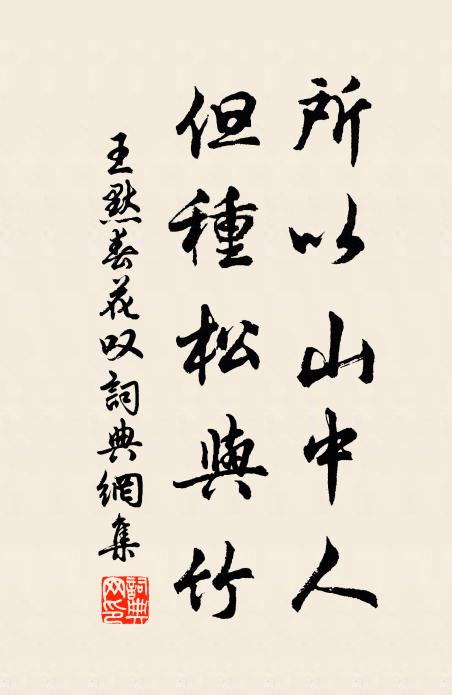 所以山中人
但種松與竹
王默春花叹詞典網集
詞典网印